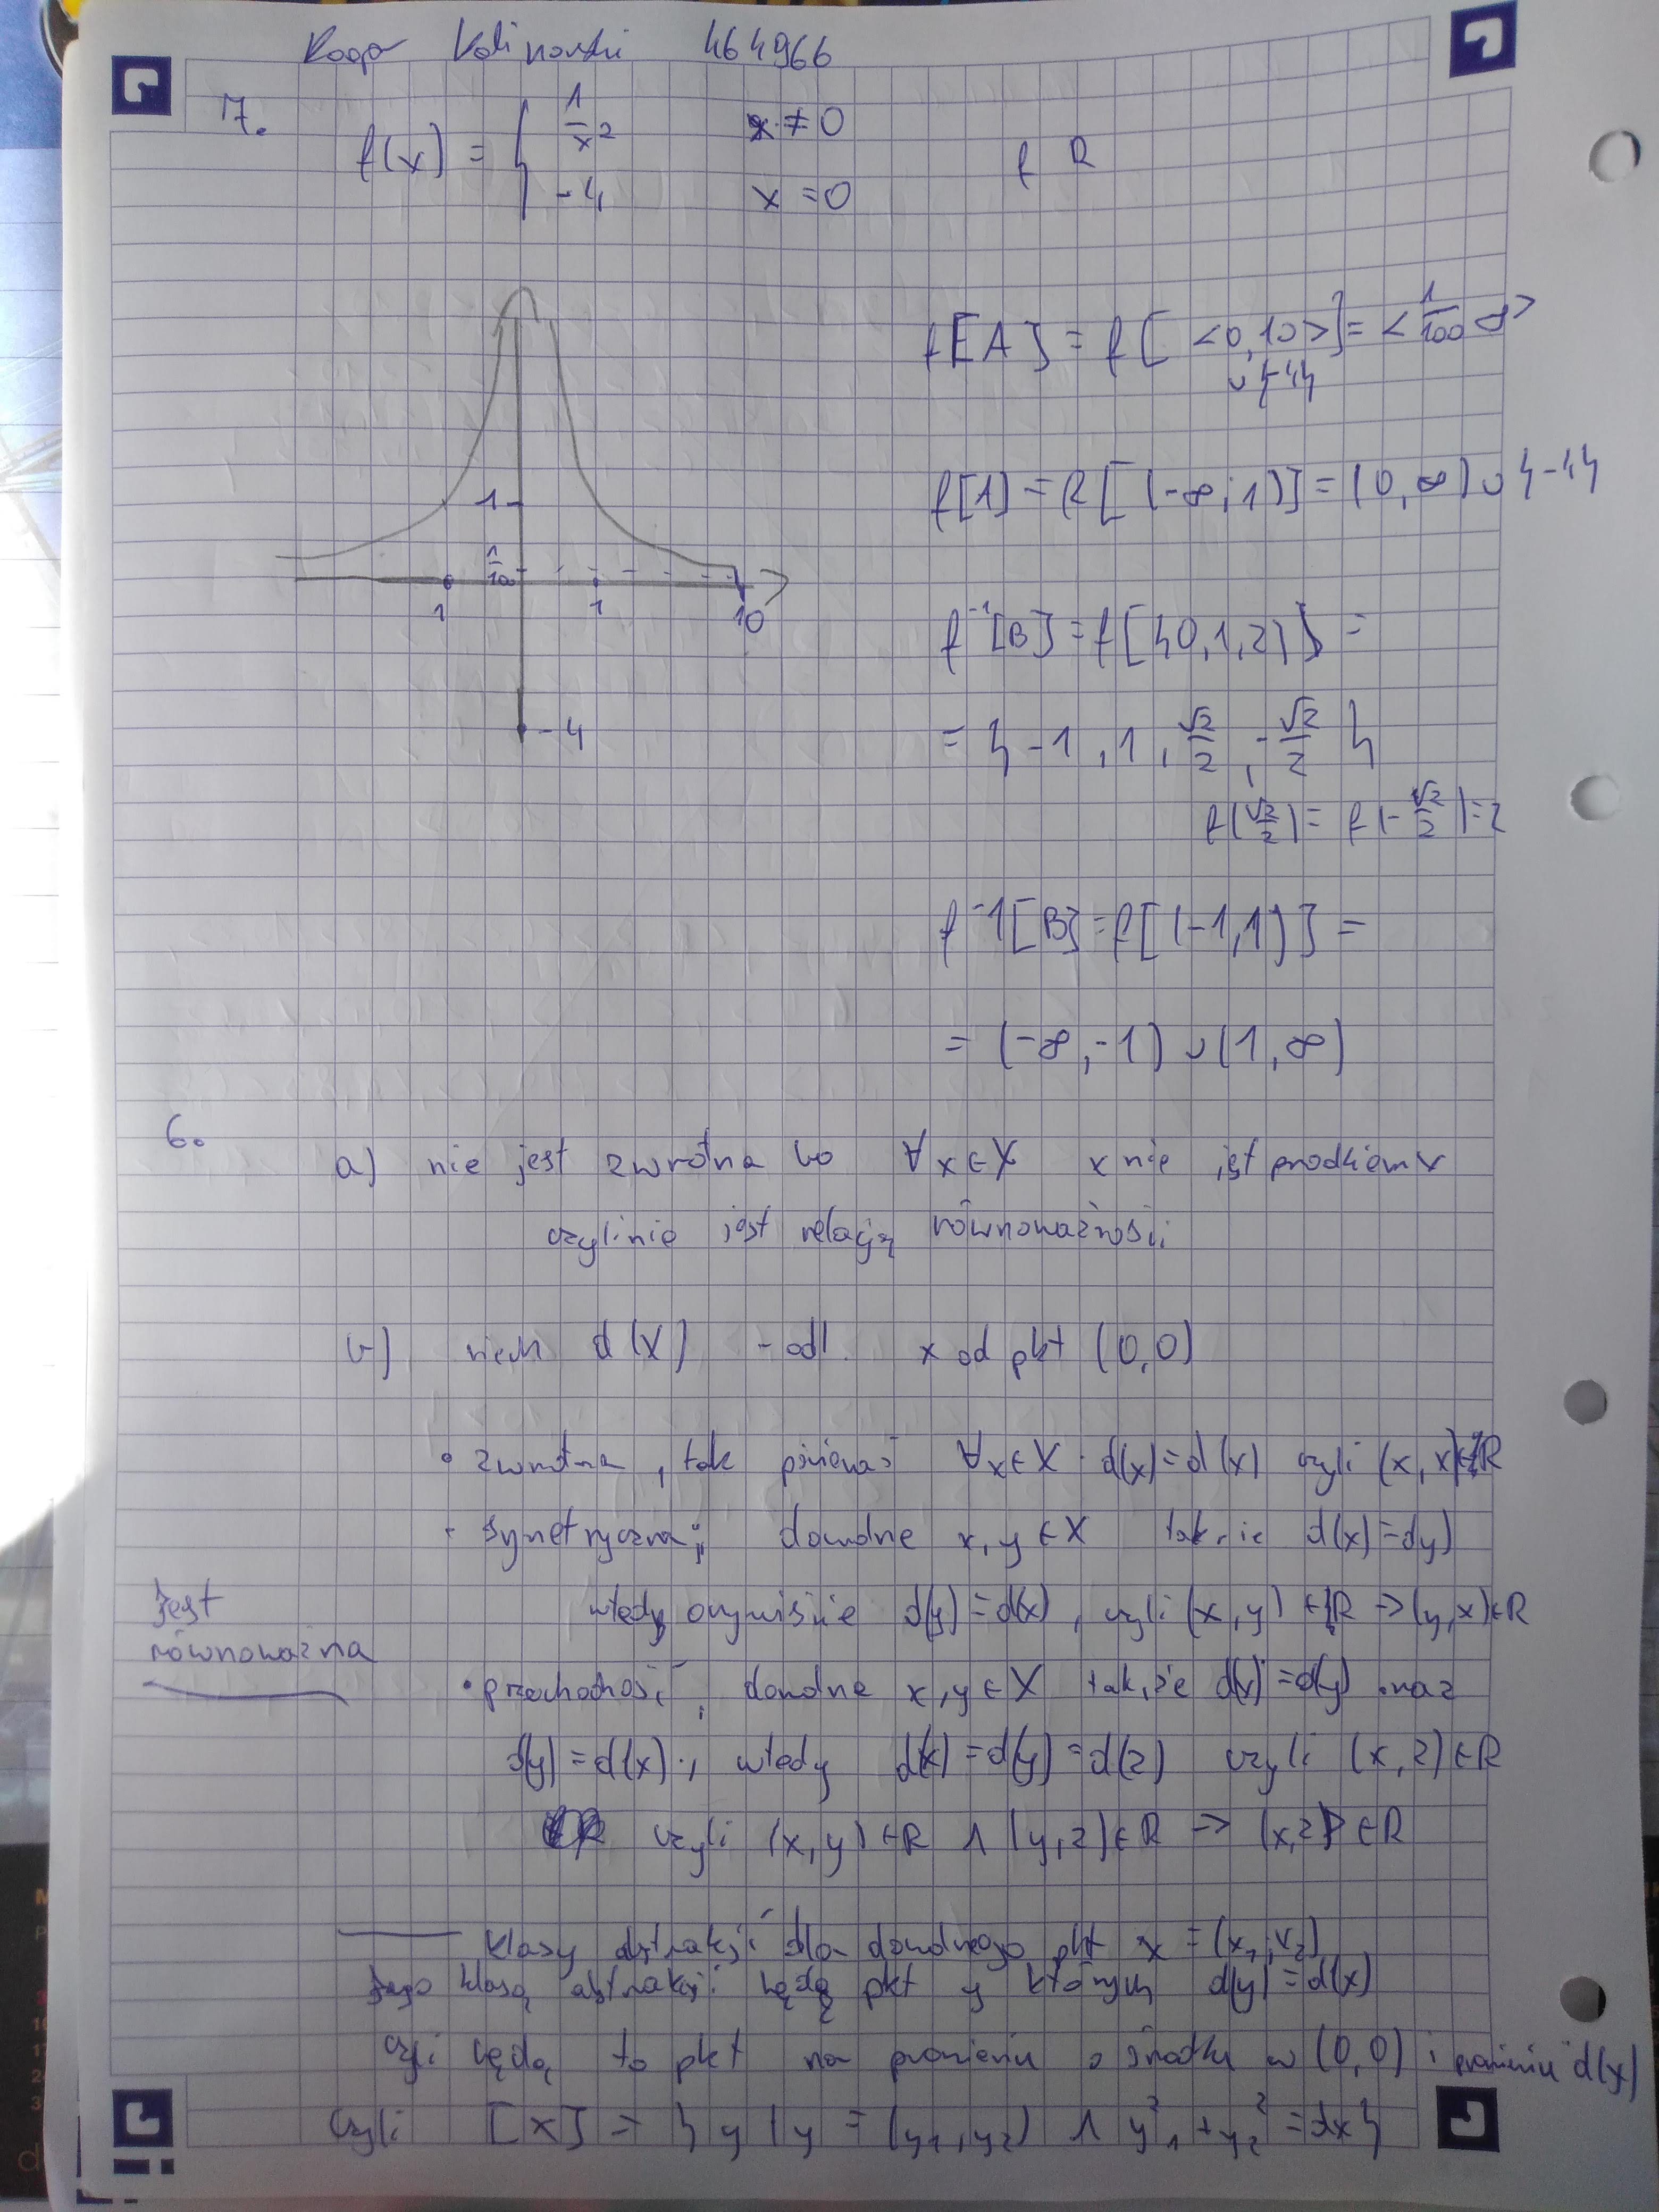 Kalinowski 464966
7. f(x) = { 1/x² x ≠ 0
-4 x = 0
f R
f[A] = f[<0,10>] = <1/100 ∞>
∪ {-4}
f[A] = f[(-∞,1)] = (0,∞) ∪ {-4}
1
1/100
1 1 10
-4
f⁻¹[B] = f[{0,1,2}] =
= {-1, 1, √2/2, -√2/2}
f(√2/2) = f(-√2/2) = 2
f⁻¹[B] = f[(-1,1)] =
= (-∞,-1) ∪ (1,∞)
6.
a) nie jest zwrotna bo ∀x∈X x nie jest przodkiem x
czyli nie jest relacją równoważności
b) niech d(x) - odl. x od pkt (0,0)
• zwrotna, tak ponieważ ∀x∈X d(x)=d(x) czyli (x,x)∈R
• symetryczna; dowolne x,y∈X tak, że d(x)=dy)
wtedy oczywiście d(y)=d(x), czyli (x,y)∈R → (y,x)∈R
Jest
równoważna
• przechodniość, dowolne x,y∈X tak, że d(x)=d(y) oraz
d(y)=d(x), wtedy d(x)=d(y)=d(z) czyli (x,z)∈R
czyli (x,y)∈R ∧ (y,z)∈R → (x,z)∈R
klasy abstrakcji dla dowolnego pkt x = (x₁,x₂)
Jego klasą abstrakcji będą pkt y których d(y)=d(x)
czyli będą to pkt na promieniu o środku w (0,0) i promieniu d(x)
czyli [x] = {y | y = (y₁,y₂) ∧ y₁²+y₂² = dx}